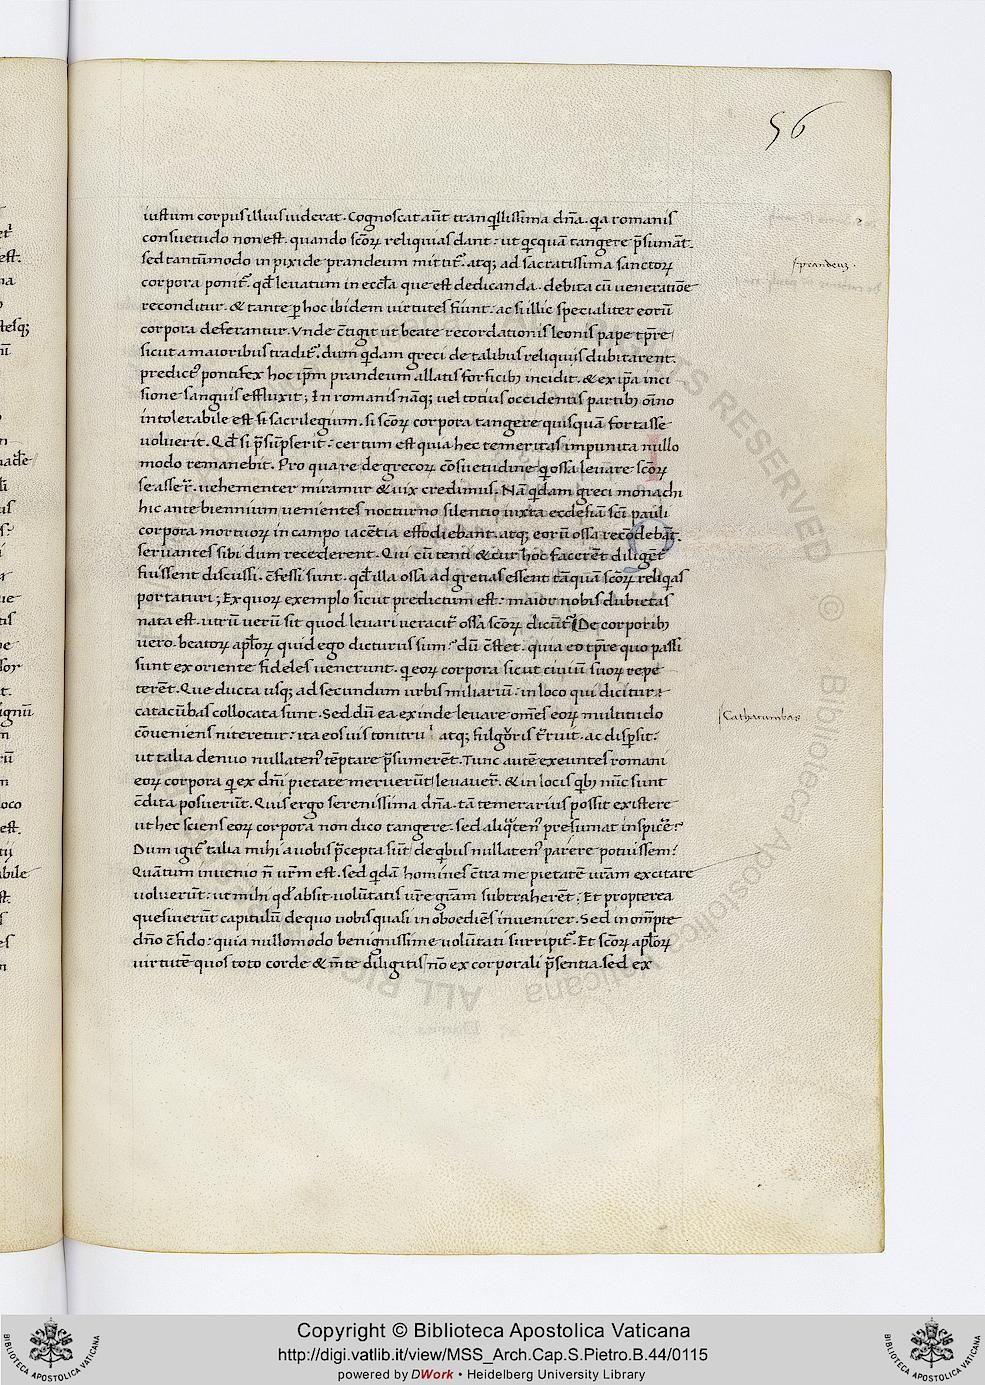 56
iustum corpus illius uiderat. Cognoscat aūt tranqllissima dn̄a. qa romanis
consuetudo non est. quando scōꝝ reliquias dant: ut qcquā tangere p̄sumāt.
sed tantūmodo in pixide prandeum mittit᷑. atqꝫ ad sacratissima sanctoꝝ
ſprandeuꝫ.
corpora ponit᷑. qđ leuatum in eccła que est dedicanda. debita cū ueneratiōe
reconditur. & tante ꝑ hoc ibidem uirtutes fiunt. ac si illic specialiter eorū
corpora deferantur. Vnde c̄tigit ut beate recordationis leonis pape tp̄re
sicut a maioribus tradit᷑. dum qdam greci de talibus reliquiis dubitarent.
predict᷒ pontifex hoc ip̄m prandeum allatis forficibꝫ incidit. & ex ip̄a inci
sione sanguis effluxit; In romanis nāqꝫ uel totius occidentis partibꝫ om̄ino
intolerabile est & sacrilegium. si scōꝝ corpora tangere quisquā fortasse
uoluerit. Qđ si p̄sūpserit: certum est quia hec temeritas impunita nullo
modo remanebit. Pro qua re de grecoꝝ cōsuetudine q ossa leuare scōꝝ
se asser᷑. uehementer miramur & uix credimus. Nā qdam greci monachi
hic ante biennium uenientes nocturno silentio iuxta ecclesiā scī pauli
corpora mortuoꝝ in campo iacētia effodiebant. atqꝫ eorū ossa recōdebāt.
seruantes sibi dum recederent. Qui cū tenti & cur hoc facerēt diligēt᷑
fuissent discussi. c̄fessi sunt. qđ illa ossa ad gretias essent tāquā scōꝝ reliqas
portaturi; Ex quoꝝ exemplo sicut predictum est: maior nobis dubietas
nata est. utrū uerū sit quod leuari ueracit᷑ ossa scōꝝ dicūt᷑ De corporibꝫ
uero. beatoꝝ apłoꝝ quid ego dicturus sum: dū c̄stet. quia eo tp̄re quo passi
sunt ex oriente fideles uenerunt. q eoꝝ corpora sicut ciuiū suoꝝ repe
terēt. Que ducta usqꝫ ad secundum urbis miliariū: in loco qui dicitur:
catacūbas collocata sunt. Sed dū ea exinde leuare om̄es eoꝝ multitudo
ſCathacumbas
cōueniens niteretur: ita eos uis tonitrui atqꝫ fulgoris t᷑ruit. ac disp̄sit:
ut talia denuo nullaten᷒ tēptare p̄sumerēt. Tunc autē exeuntes romani
eoꝝ corpora q ex dn̄i pietate meruerūt leuauer᷑. & in locis qbꝫ nūc sunt
c̄dita posuerūt. Quis ergo serenissima dn̄a. tā temerarius possit existere
ut hec sciens eoꝝ corpora non dico tangere. sed aliqten᷒ presumat inspice᷑?
Dum igit᷑ talia mihi a uobis p̄cepta sūt de qbus nullaten᷒ parere potuissem:
Quātum inuenio n̄ ur̄m est. sed qdā homines c̄tra me pietatē ur̄am excitare
uoluerūt: ut mihi qđ absit uolūtatis ur̄e gr̄am subtraherēt: Et propterea
quesiuerūt capitulū de quo uobis quasi inoboediēs inuenirer. Sed in om̄pte
dn̄o c̄fido: quia nullomodo benignissime uolūtati surripit᷑. Et scōꝝ apłoꝝ
uirtutē quos toto corde & m̄te diligitis nō ex corporali p̄sentia. sed ex
Copyright © Biblioteca Apostolica Vaticana
http://digi.vatlib.it/view/MSS_Arch.Cap.S.Pietro.B.44/0115
powered by DWork • Heidelberg University Library